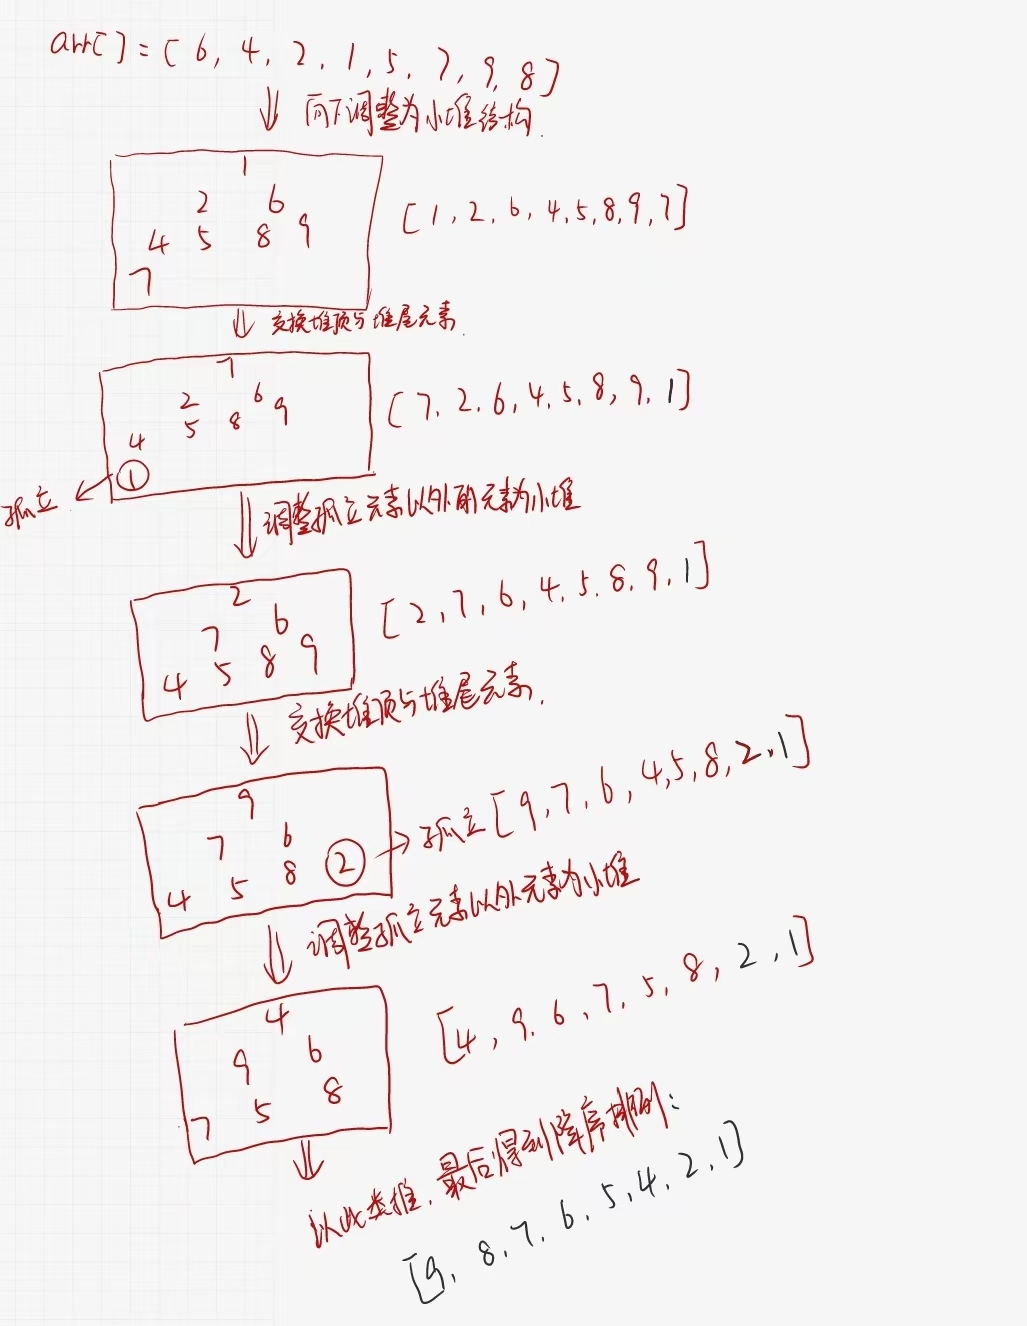 arr[] = [ 6, 4, 2, 1, 5, 7, 9, 8 ]
向下调整为小堆结构.
1
2 6
4 5 8 9
7
[ 1, 2, 6, 4, 5, 8, 9, 7 ]
交换堆顶与堆尾元素.
7
2 6
4 5 8 9
①
[ 7, 2, 6, 4, 5, 8, 9, 1 ]
孤立
调整孤立元素以外的元素为小堆
2
7 6
4 5 8 9
[ 2, 7, 6, 4, 5, 8, 9, 1 ]
交换堆顶与堆尾元素.
9
7 6
4 5 8 ②
孤立 [ 9, 7, 6, 4, 5, 8, 2, 1 ]
调整孤立元素以外元素为小堆
4
9 6
7 5 8
[ 4, 9, 6, 7, 5, 8, 2, 1 ]
以此类推, 最后得到降序排列:
[ 9, 8, 7, 6, 5, 4, 2, 1 ]